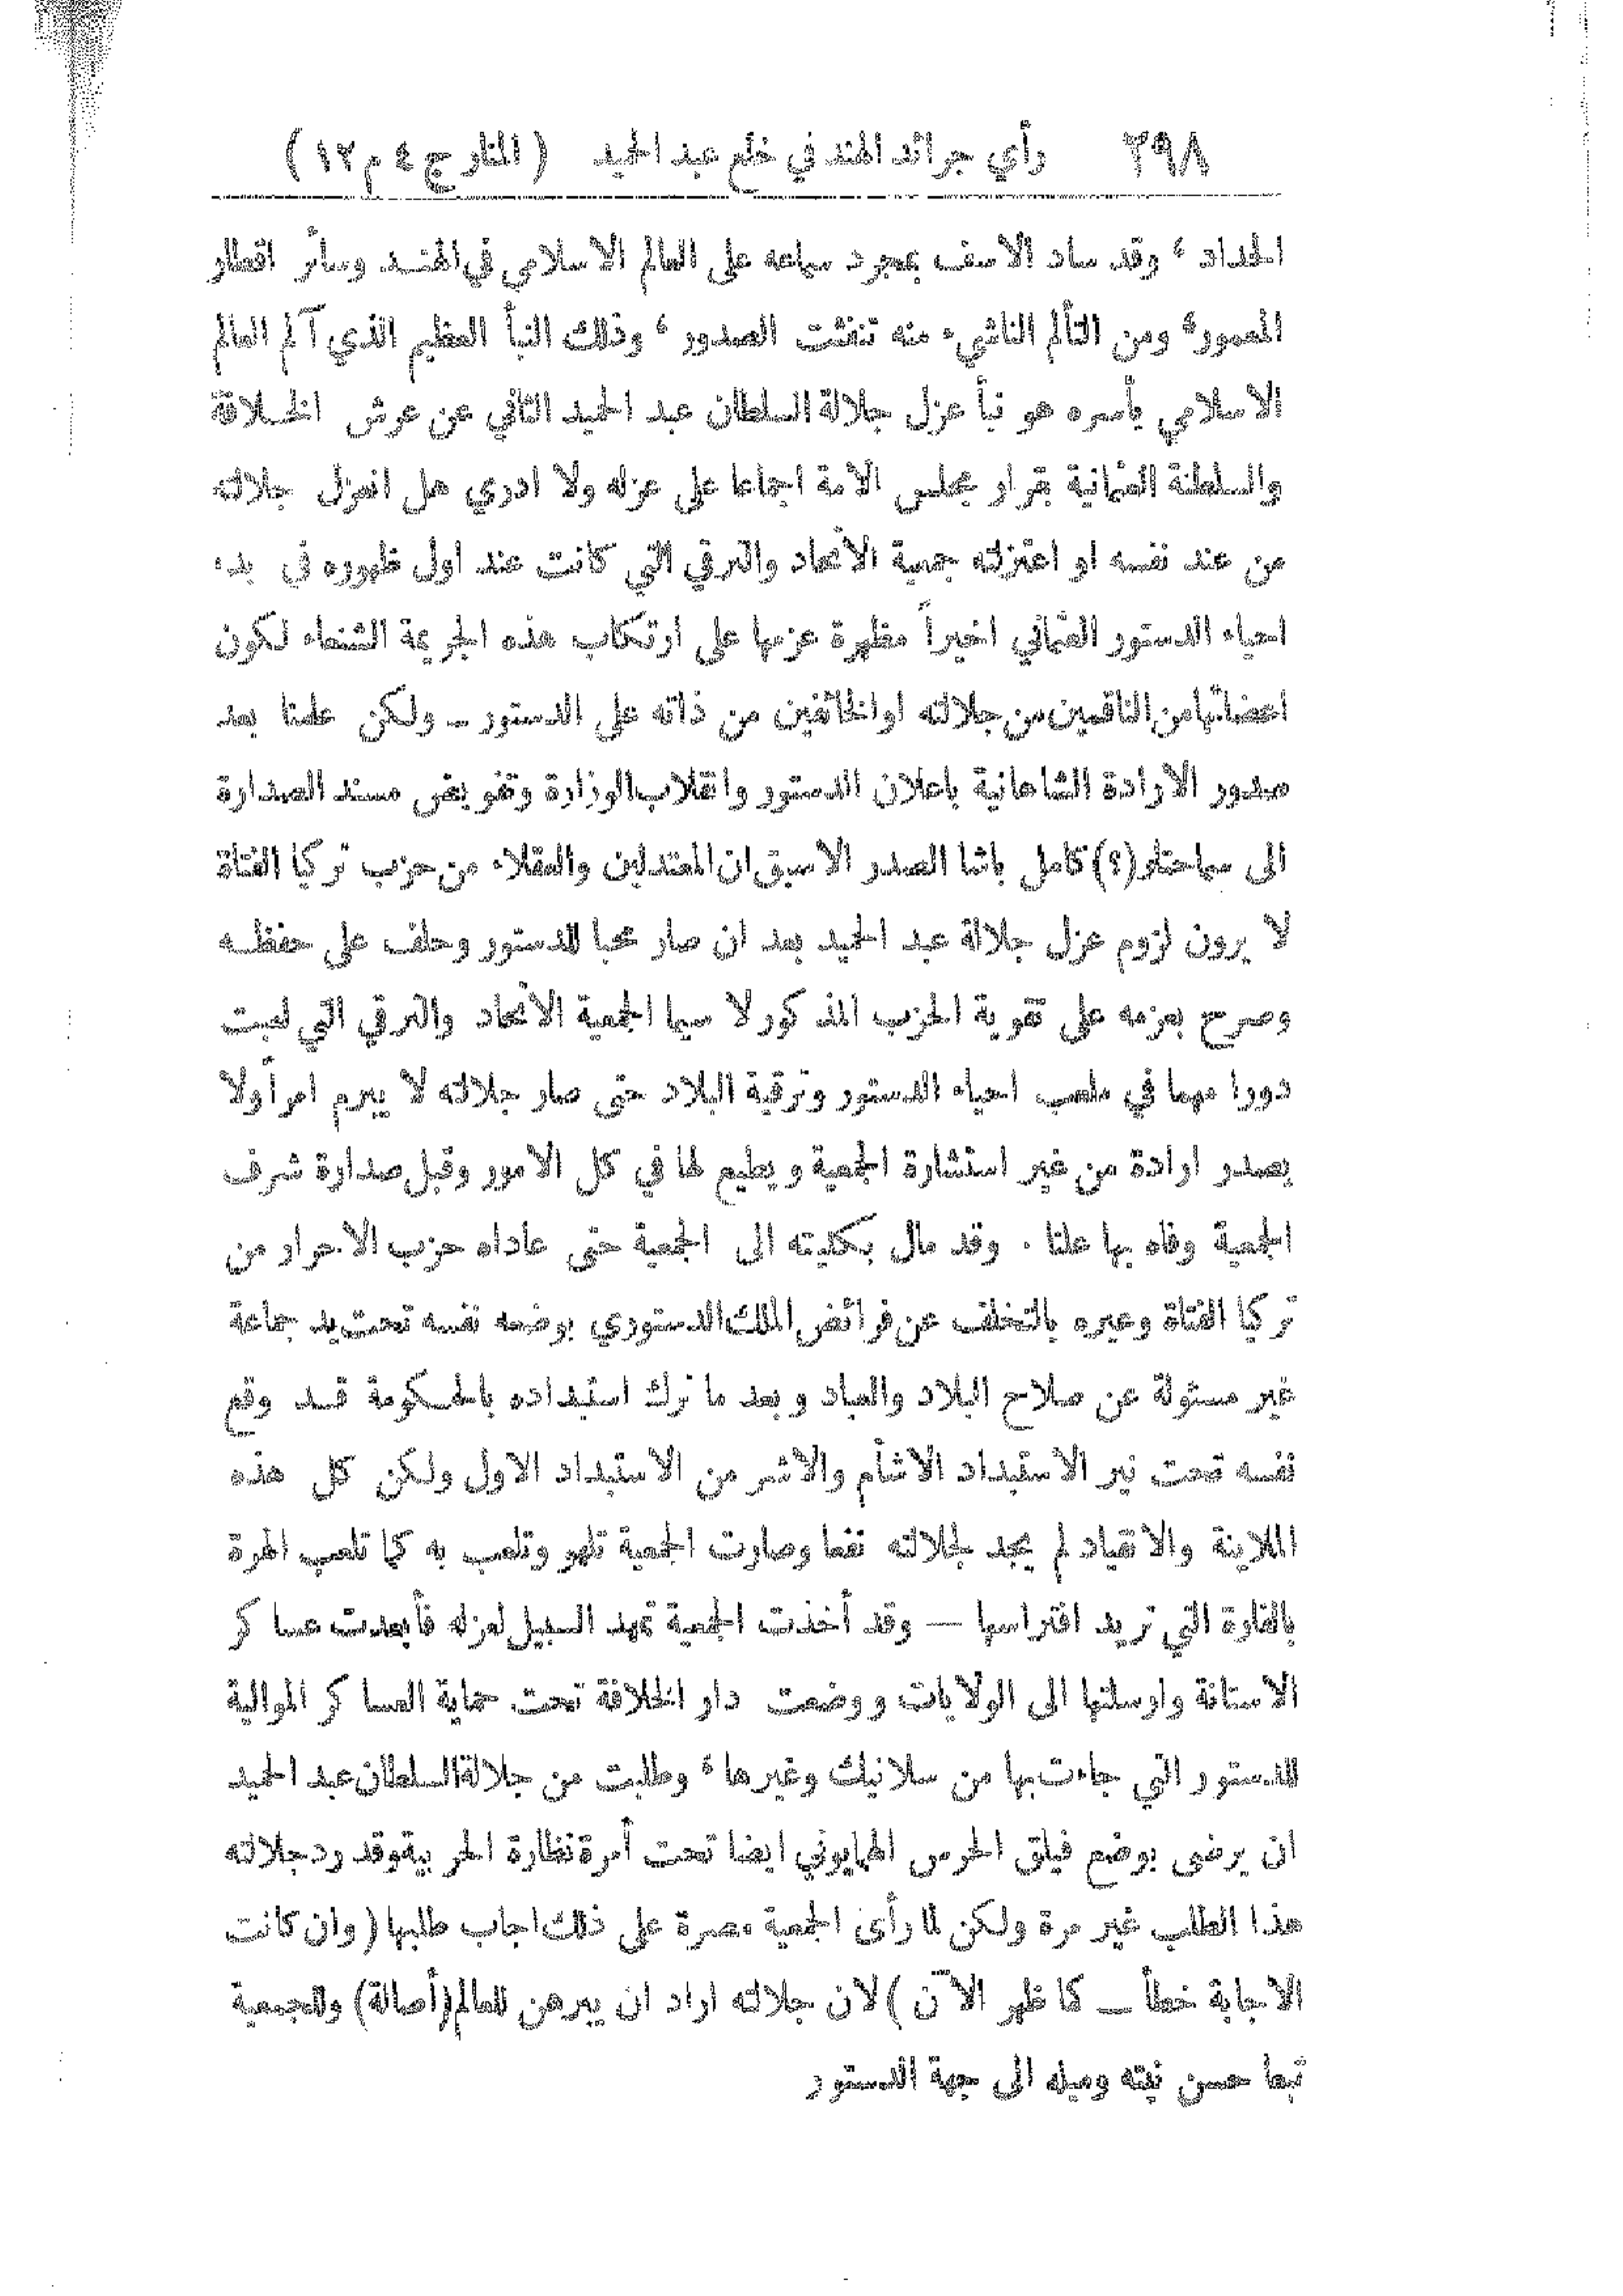 ٢٩٨ رأي جرائد الهند في خلع عبد الحميد ( المنار ج ٤ م ١٢ )
الحداد ، وقد ساد الاسف بمجرد سماعه على العالم الاسلامي في الهند وسائر اقطار
المعمور، ومن التألم الناشيء منه تنفثت الصدور ، وذلك النبأ العظيم الذي آلم العالم
الاسلامي بأسره هو نبأ عزل جلالة السلطان عبد الحميد الثاني عن عرش الخلافة
والسلطنة العثمانية بقرار مجلس الأمة اجماعا على عزله ولا ادري هل انعزل جلالته
من عند نفسه او اعتزلته جمعية الاتحاد والترقي التي كانت عند اول ظهوره في بدء
احياء الدستور العثماني اخيراً مظهرة عزمها على ارتكاب هذه الجريمة الشنعاء لكون
اعضائها من الناقمين من جلالته او الخائفين من ذاته على الدستور ــ ولكن علمنا بعد
صدور الارادة الشاهانية باعلان الدستور وانقلاب الوزارة وتفويض مسند الصدارة
الى سماحتلو (؟) كامل باشا الصدر الاسبق ان المعتدلين والعقلاء من حزب تركيا الفتاة
لا يرون لزوم عزل جلالة عبد الحميد بعد ان صار محبا للدستور وحلف على حفظه
وصرح بعزمه على تقوية الحزب المذكور لا سيما الجمعية الاتحاد والترقي التي لعبت
دورا مهما في ملعب احياء الدستور وترقية البلاد حتى صار جلالته لا يبرم امرأ ولا
يصدر ارادة من غير استشارة الجمعية ويطيع لها في كل الامور وقبل صدارة شرف
الجمعية وفاه بها علنا . وقد مال بكليته الى الجمعية حتى عاداه حزب الاحرار من
تركيا الفتاة وعيره بالتخلف عن فرائض الملك الدستوري بوضعه نفسه تحت يد جماعة
غير مسئولة عن صلاح البلاد والعباد وبعد ما ترك استبداده بالحكومة قد وقع
نفسه تحت نير الاستبداد الاشأم والاشر من الاستبداد الاول ولكن كل هذه
الملاينة والانقياد لم يجد لجلالته نفعا وصارت الجمعية تلهو وتلعب به كما تلعب الهرة
بالفارة التي تريد افتراسها — وقد أخذت الجمعية تمهد السبيل لعزله فأبعدت عساكر
الاستانة وارسلتها الى الولايات ووضعت دار الخلافة تحت حماية العساكر الموالية
للدستور التي جاءت بها من سلانيك وغيرها ، وطلبت من جلالة السلطان عبد الحميد
ان يرضى بوضع فيلق الحرس الهمايوني ايضا تحت أمرة نظارة الحربية وقد رد جلالته
هذا الطلب غير مرة ولكن لما رأى الجمعية مصرة على ذلك اجاب طلبها ( وان كانت
الاجابة خطأ ــ كما ظهر الآن ) لان جلالته اراد ان يبرهن للعالم (أصالة) وللجمعية
تبعا حسن نيته وميله الى جهة الدستور